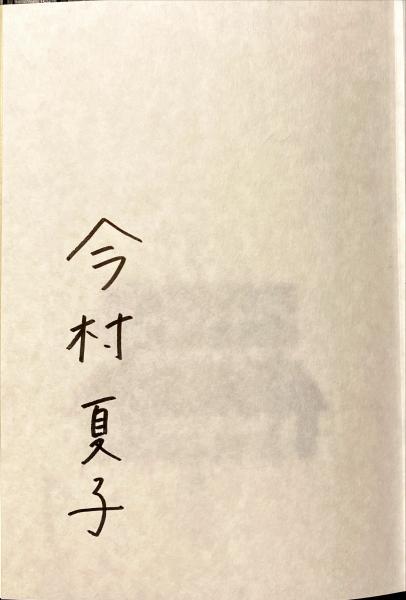 今村夏子